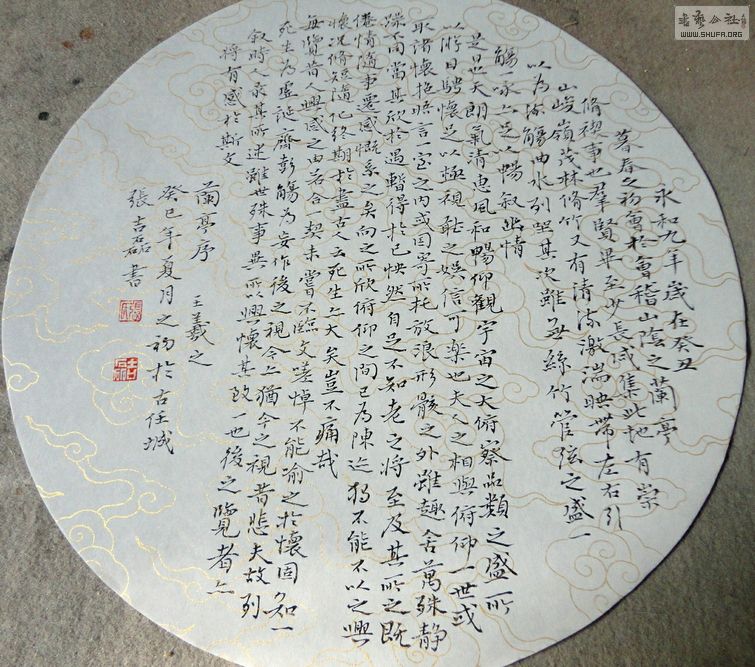 永和九年歲在癸丑
暮春之初會於會稽山陰之蘭亭
脩禊事也群賢畢至少長咸集此地有崇
山峻嶺茂林脩竹又有清流激湍映帶左右引
以為流觴曲水列坐其次雖無絲竹管弦之盛一
觴一詠亦足以暢敘幽情
是日也天朗氣清惠風和暢仰觀宇宙之大俯察品類之盛所
以游目騁懷足以極視聽之娛信可樂也夫人之相與俯仰一世或
取諸懷抱晤言一室之內或因寄所托放浪形骸之外雖趣舍萬殊靜
躁不同當其欣於遇暫得於己怏然自足不知老之將至及其所之既
倦情隨事遷感慨系之矣向之所欣俯仰之間已為陳迹猶不能不以之興
懷況脩短隨化終期於盡古人云死生亦大矣豈不痛哉
每覽昔人興感之由若合一契未嘗不臨文嗟悼不能喻之於懷固知一
死生為虛誕齊彭殤為妄作後之視今亦猶今之視昔悲夫故列
敘時人錄其所述雖世殊事異所以興懷其致一也後之覽者亦
將有感於斯文
蘭亭序 王羲之
癸巳年夏月之初於古任城
張吉磊書
書藝公社
WWW.SHUFA.ORG